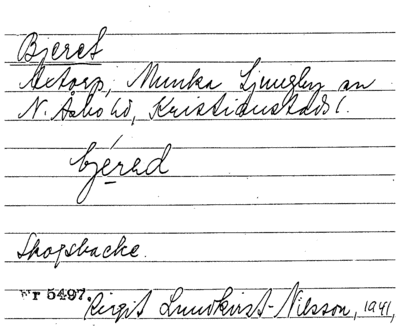 Bjeret
Axtorp, Munka Ljungby sn
N. Åsbo hd, Kristianstads l.
bjéred
Skogsbacke.
Nr 5497. Birgit Lundkvist-Nilsson, 1941,